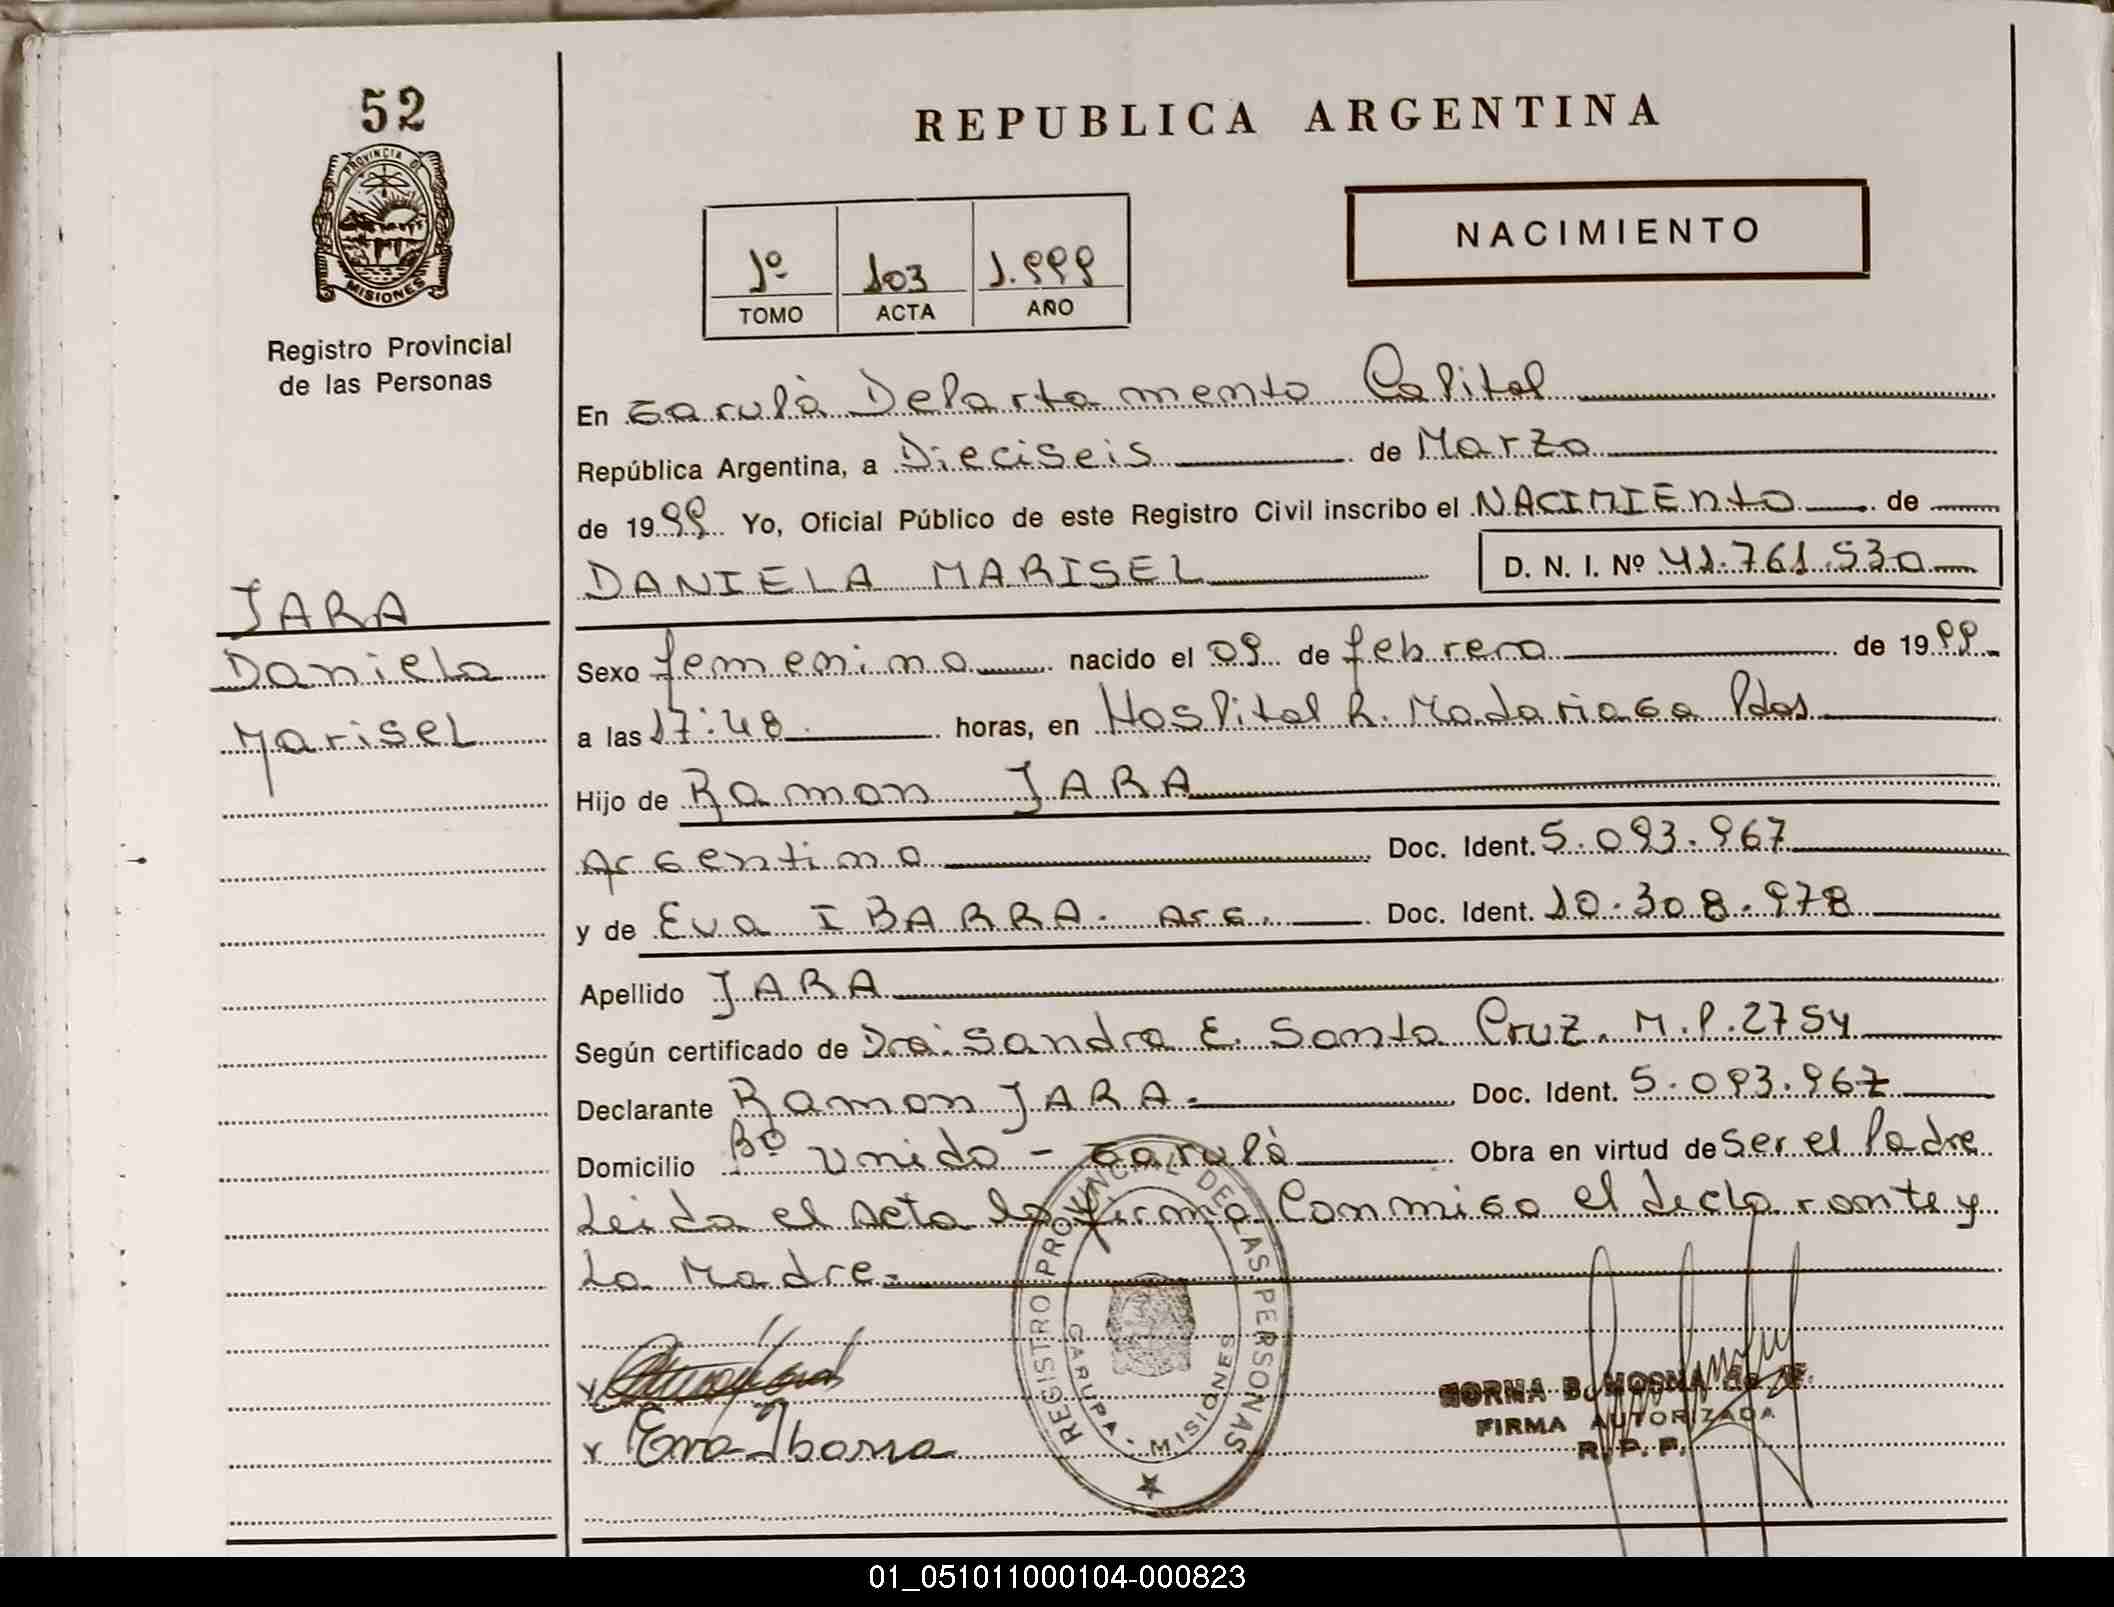 52
PROVINCIA DE
MISIONES
Registro Provincial
de las Personas
JARA
Daniela
Marisel
REPUBLICA ARGENTINA
NACIMIENTO
1º 103 1.999
TOMO ACTA AÑO
En Garupá Departamento Capital
República Argentina, a Dieciseis de Marzo
de 1999 Yo, Oficial Público de este Registro Civil inscribo el NACIMIENTO de
DANIELA MARISEL D. N. I. Nº 41.761.530
Sexo femenino nacido el 09 de febrero de 1999
a las 17:48 horas, en Hospital R. Madariaga Pdas
Hijo de Ramon JARA
Argentino Doc. Ident. 5.093.967
y de Eva IBARRA. Arg. Doc. Ident. 10.308.978
Apellido JARA
Según certificado de Dra. Sandra E. Santa Cruz. M.P. 2754
Declarante Ramon JARA. Doc. Ident. 5.093.967
Domicilio Bº Unido - Garupá Obra en virtud de Ser el Padre
Leida el acta la firma Conmigo el declarante y
La Madre.
REGISTRO PROVINCIAL DE LAS PERSONAS
GARUPA - MISIONES
x
x Eva Ibarra
NORMA B.
FIRMA AUTORIZADA
R. P. P.
01_051011000104-000823